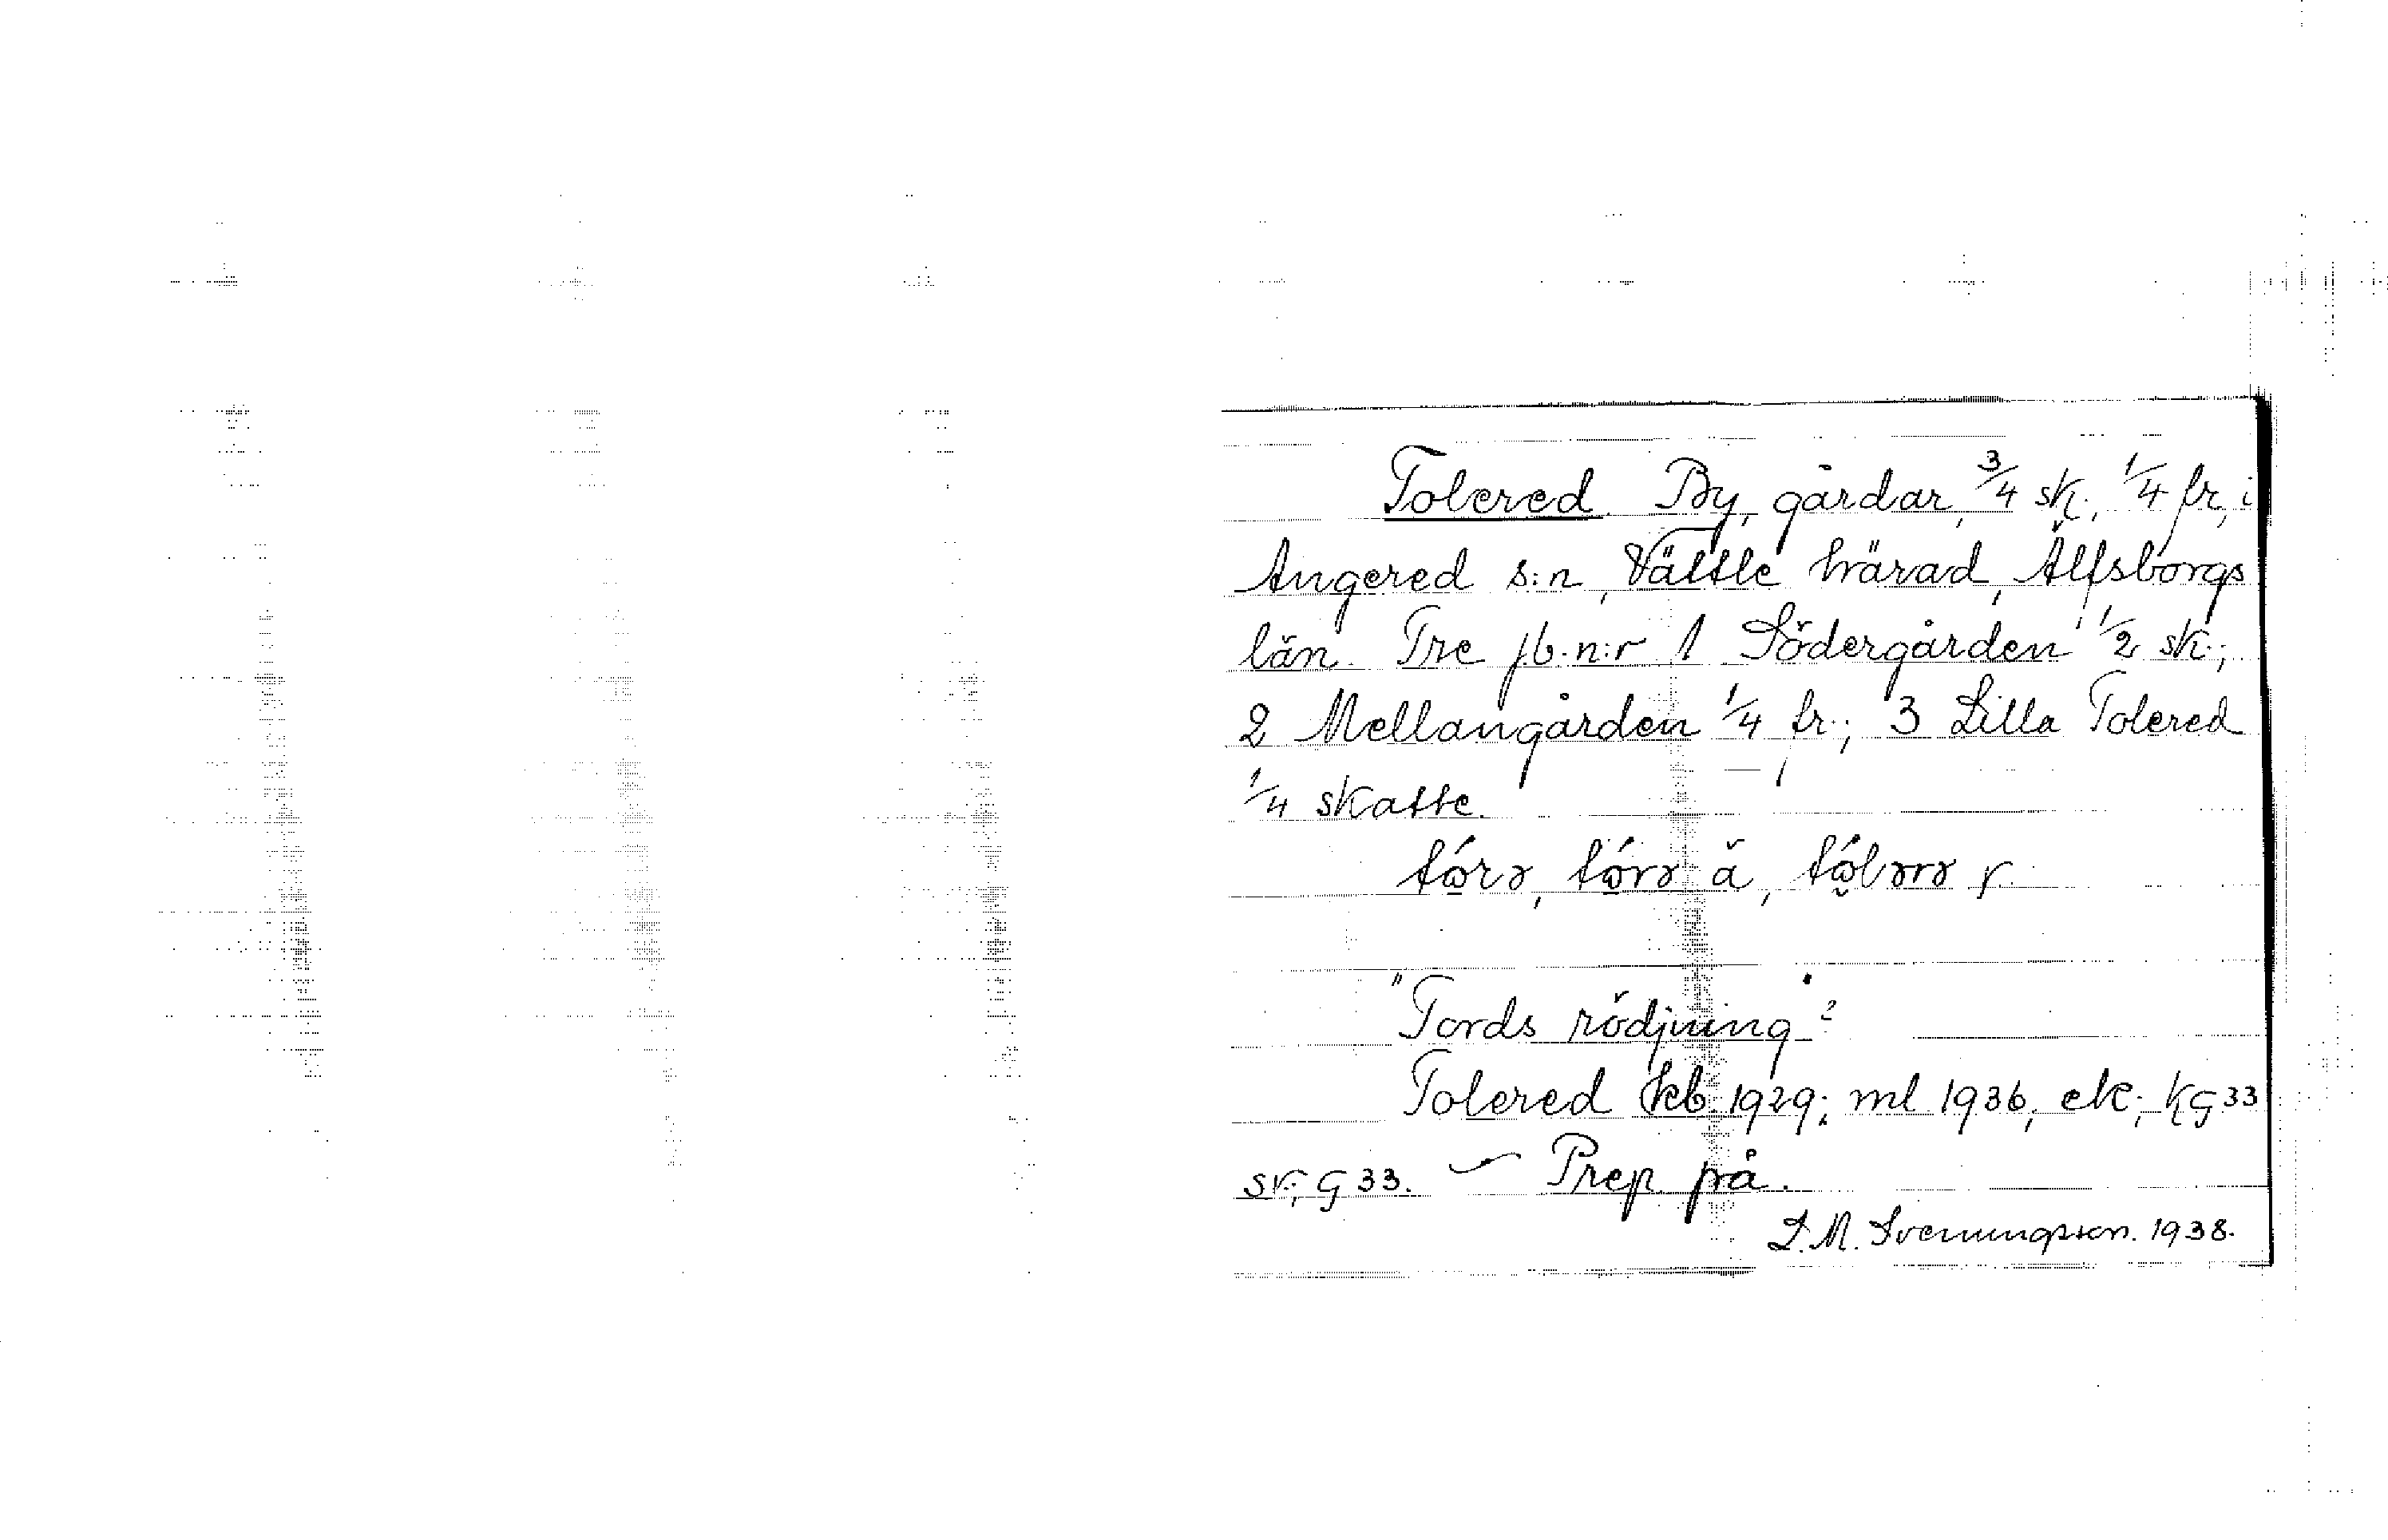 Tolered. By, gårdar, 3/4 sk., 1/4 fr, i
Angered s:n, Vättle härad, Älfsborgs
län. Tre jb.n:r 1 Södergården 1/2 sk.;
2 Mellangården 1/4 fr.; 3 Lilla Tolered
1/4 skatte.
"Tords rödjning"?
Tolered kb. 1929; ml 1936, ek; KG33
sk; G33. – Prep på.
D.M. Svenungsson. 1938.